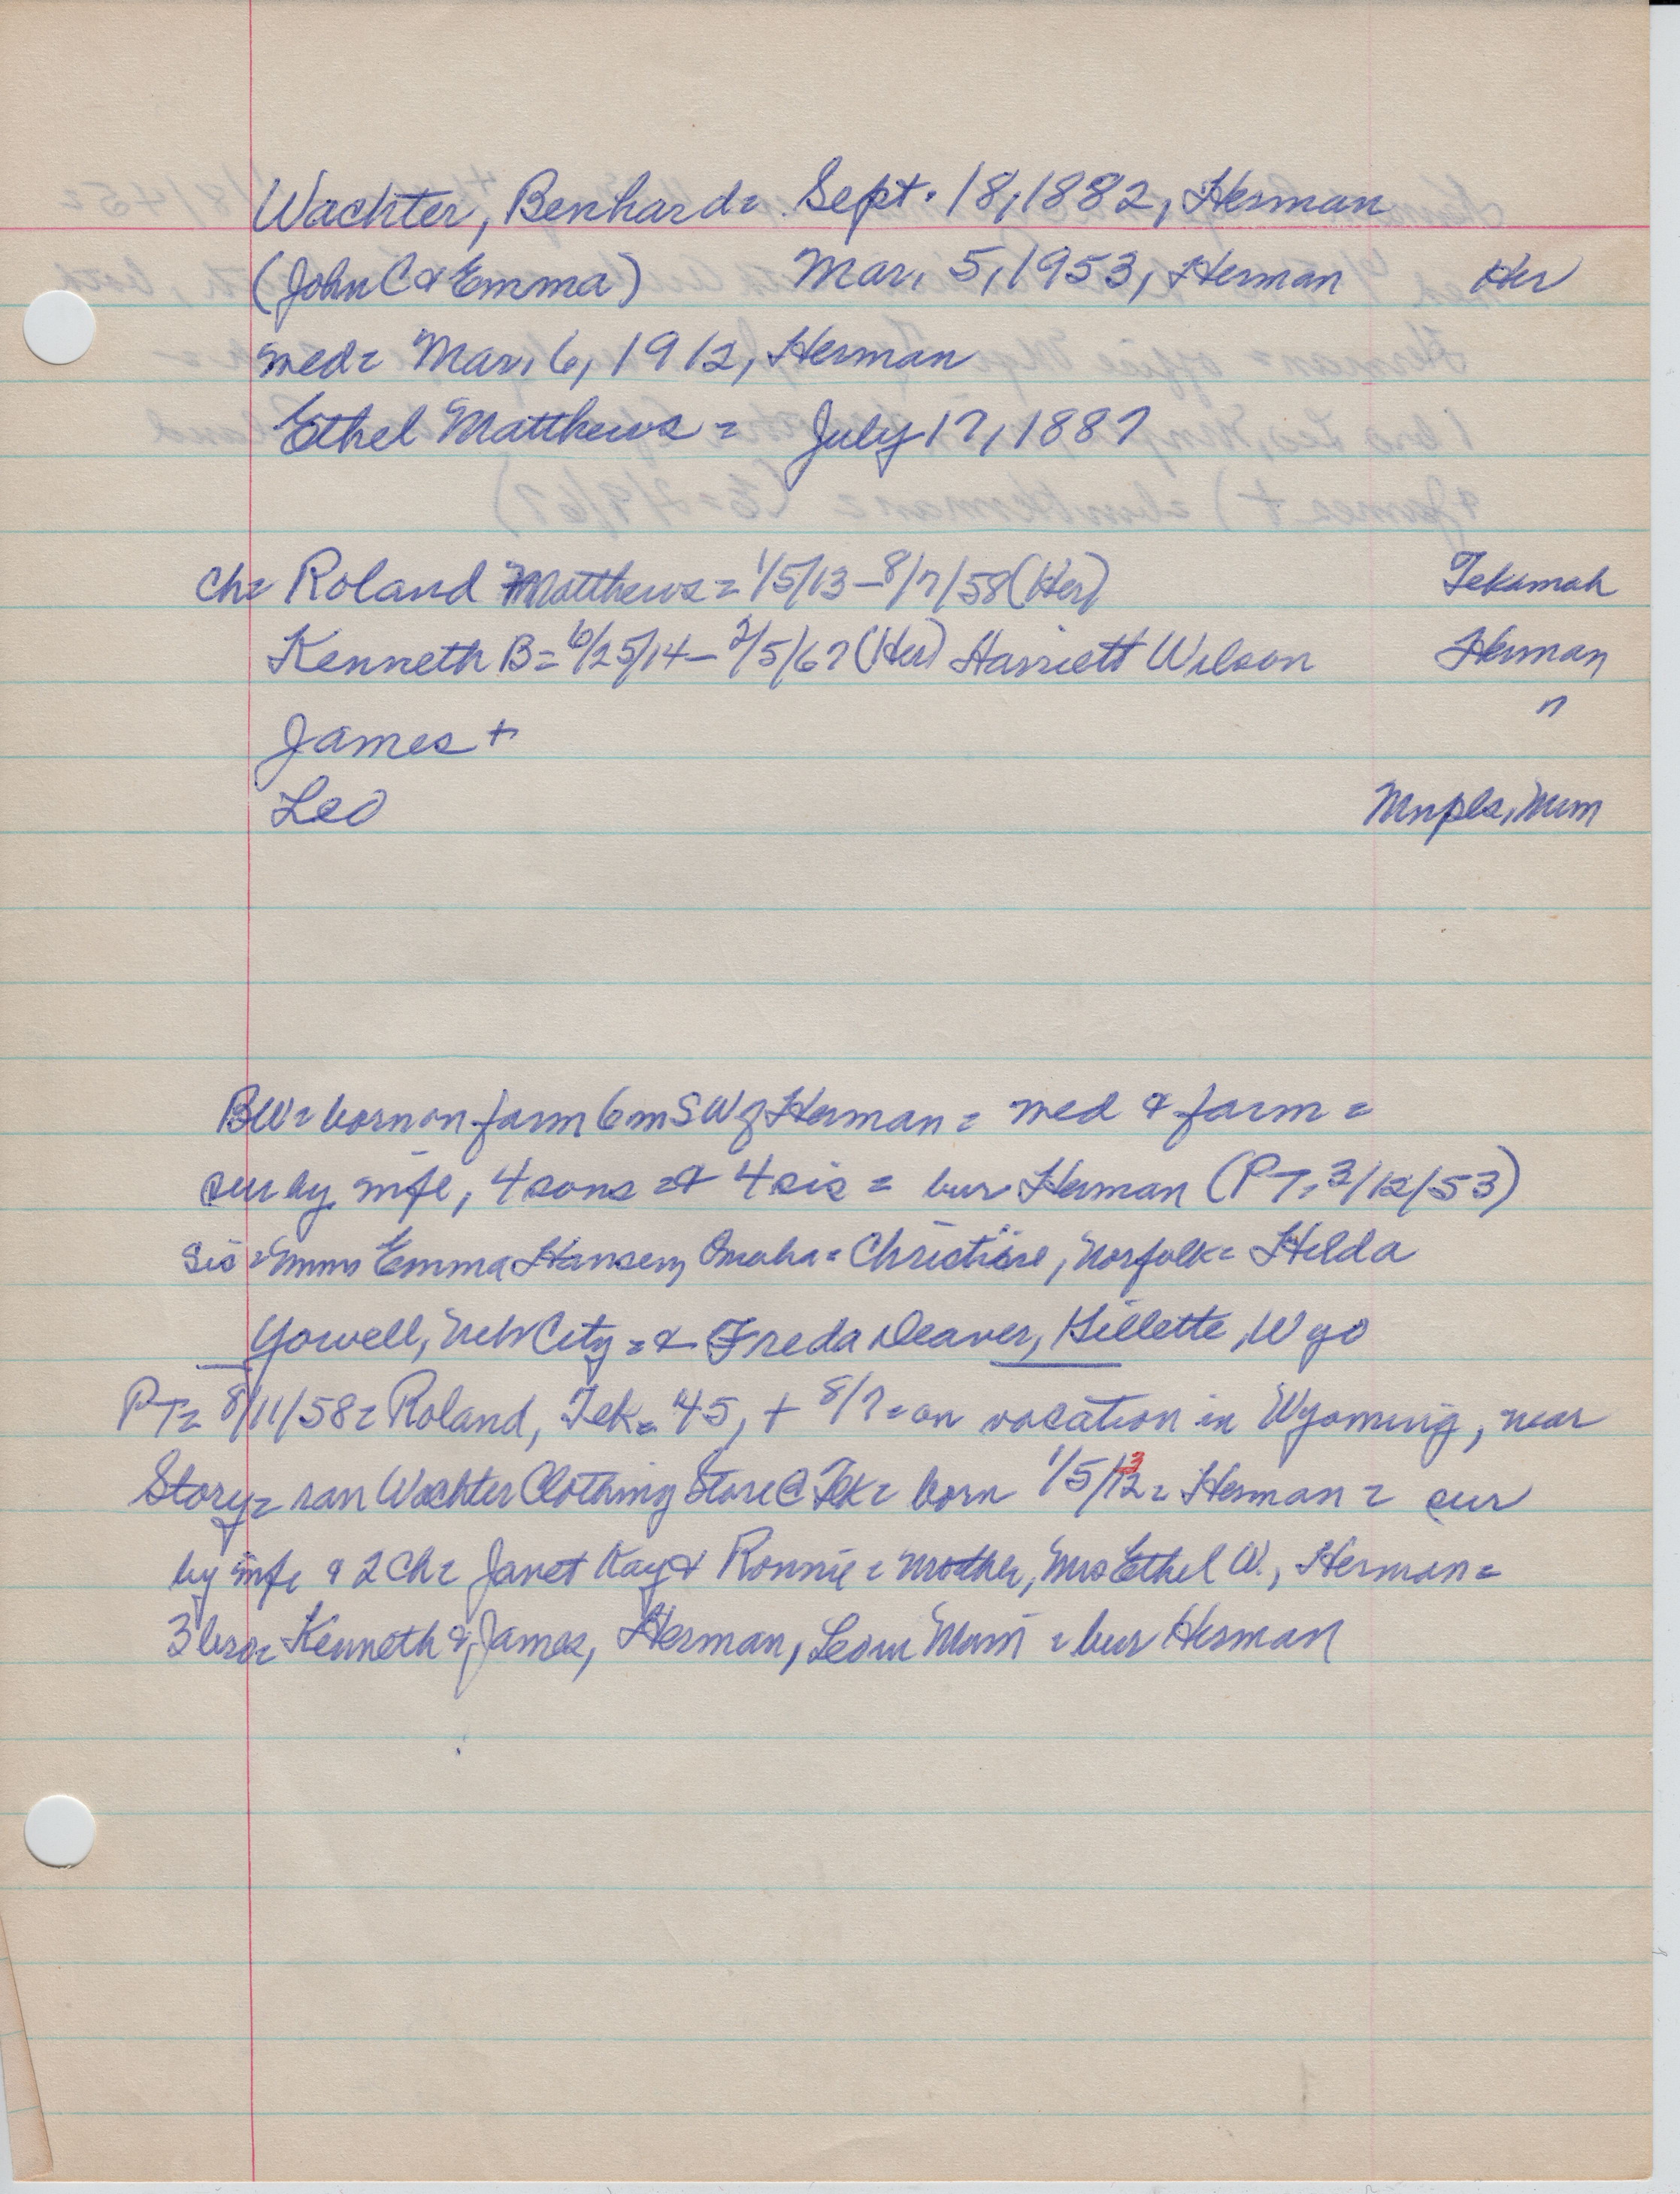 Wachter, Benhard= Sept. 18, 1882, Herman
(John C & Emma) Mar. 5, 1953, Herman Her
med= Mar. 6, 1912, Herman
Ethel Matthews = July 17, 1887
Ch= Roland Matthews = 1/5/13 – 8/7/58 (Her) Tekamah
Kenneth B = 6/25/14 – 2/5/67 (Her) Harriett Wilson Herman
James + "
Leo Mnpls, Minn
BW= born on farm 6 m SW of Herman = med & farm =
sur by wife, 4 sons = & 4 sis = bur Herman (PT, 3/12/53)
Sis = Emma Hansen, Omaha = Christine, Norfolk = Hilda
Yowell, Neb City = & Freda Deaver, Gillette, Wyo
PT= 8/11/58 = Roland, Tek = 45, + 8/7 = on vacation in Wyoming, near
Story = ran Wachter Clothing Store @ Tek = born 1/5/13 = Herman = sur
by wife & 2 Ch = Janet Kay & Ronnie = mother, Mrs Ethel W., Herman =
3 bro = Kenneth & James, Herman, Leo in Minn = bur Herman